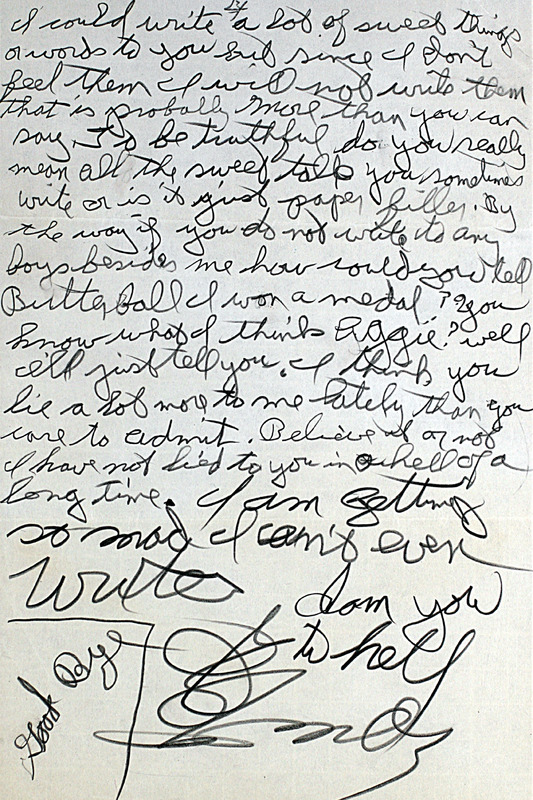 4
I could write a lot of sweet things
or words to you but since I don't
feel them I will not write them
that is probally more than you can
say. To be truthful do you really
mean all the sweet talk you sometimes
write or is it just paper filler. By
the way if you do not write to any
boys besides me how could you tell
Butterball I won a medal? you
know what I think Aggie? well
I'll just tell you. I think you
lie a lot more to me lately than you
care to admit. Believe it or not
I have not lied to you in a hell of a
long time. I am getting
so mad I can't even
write
dam you
to hell
Good Bye